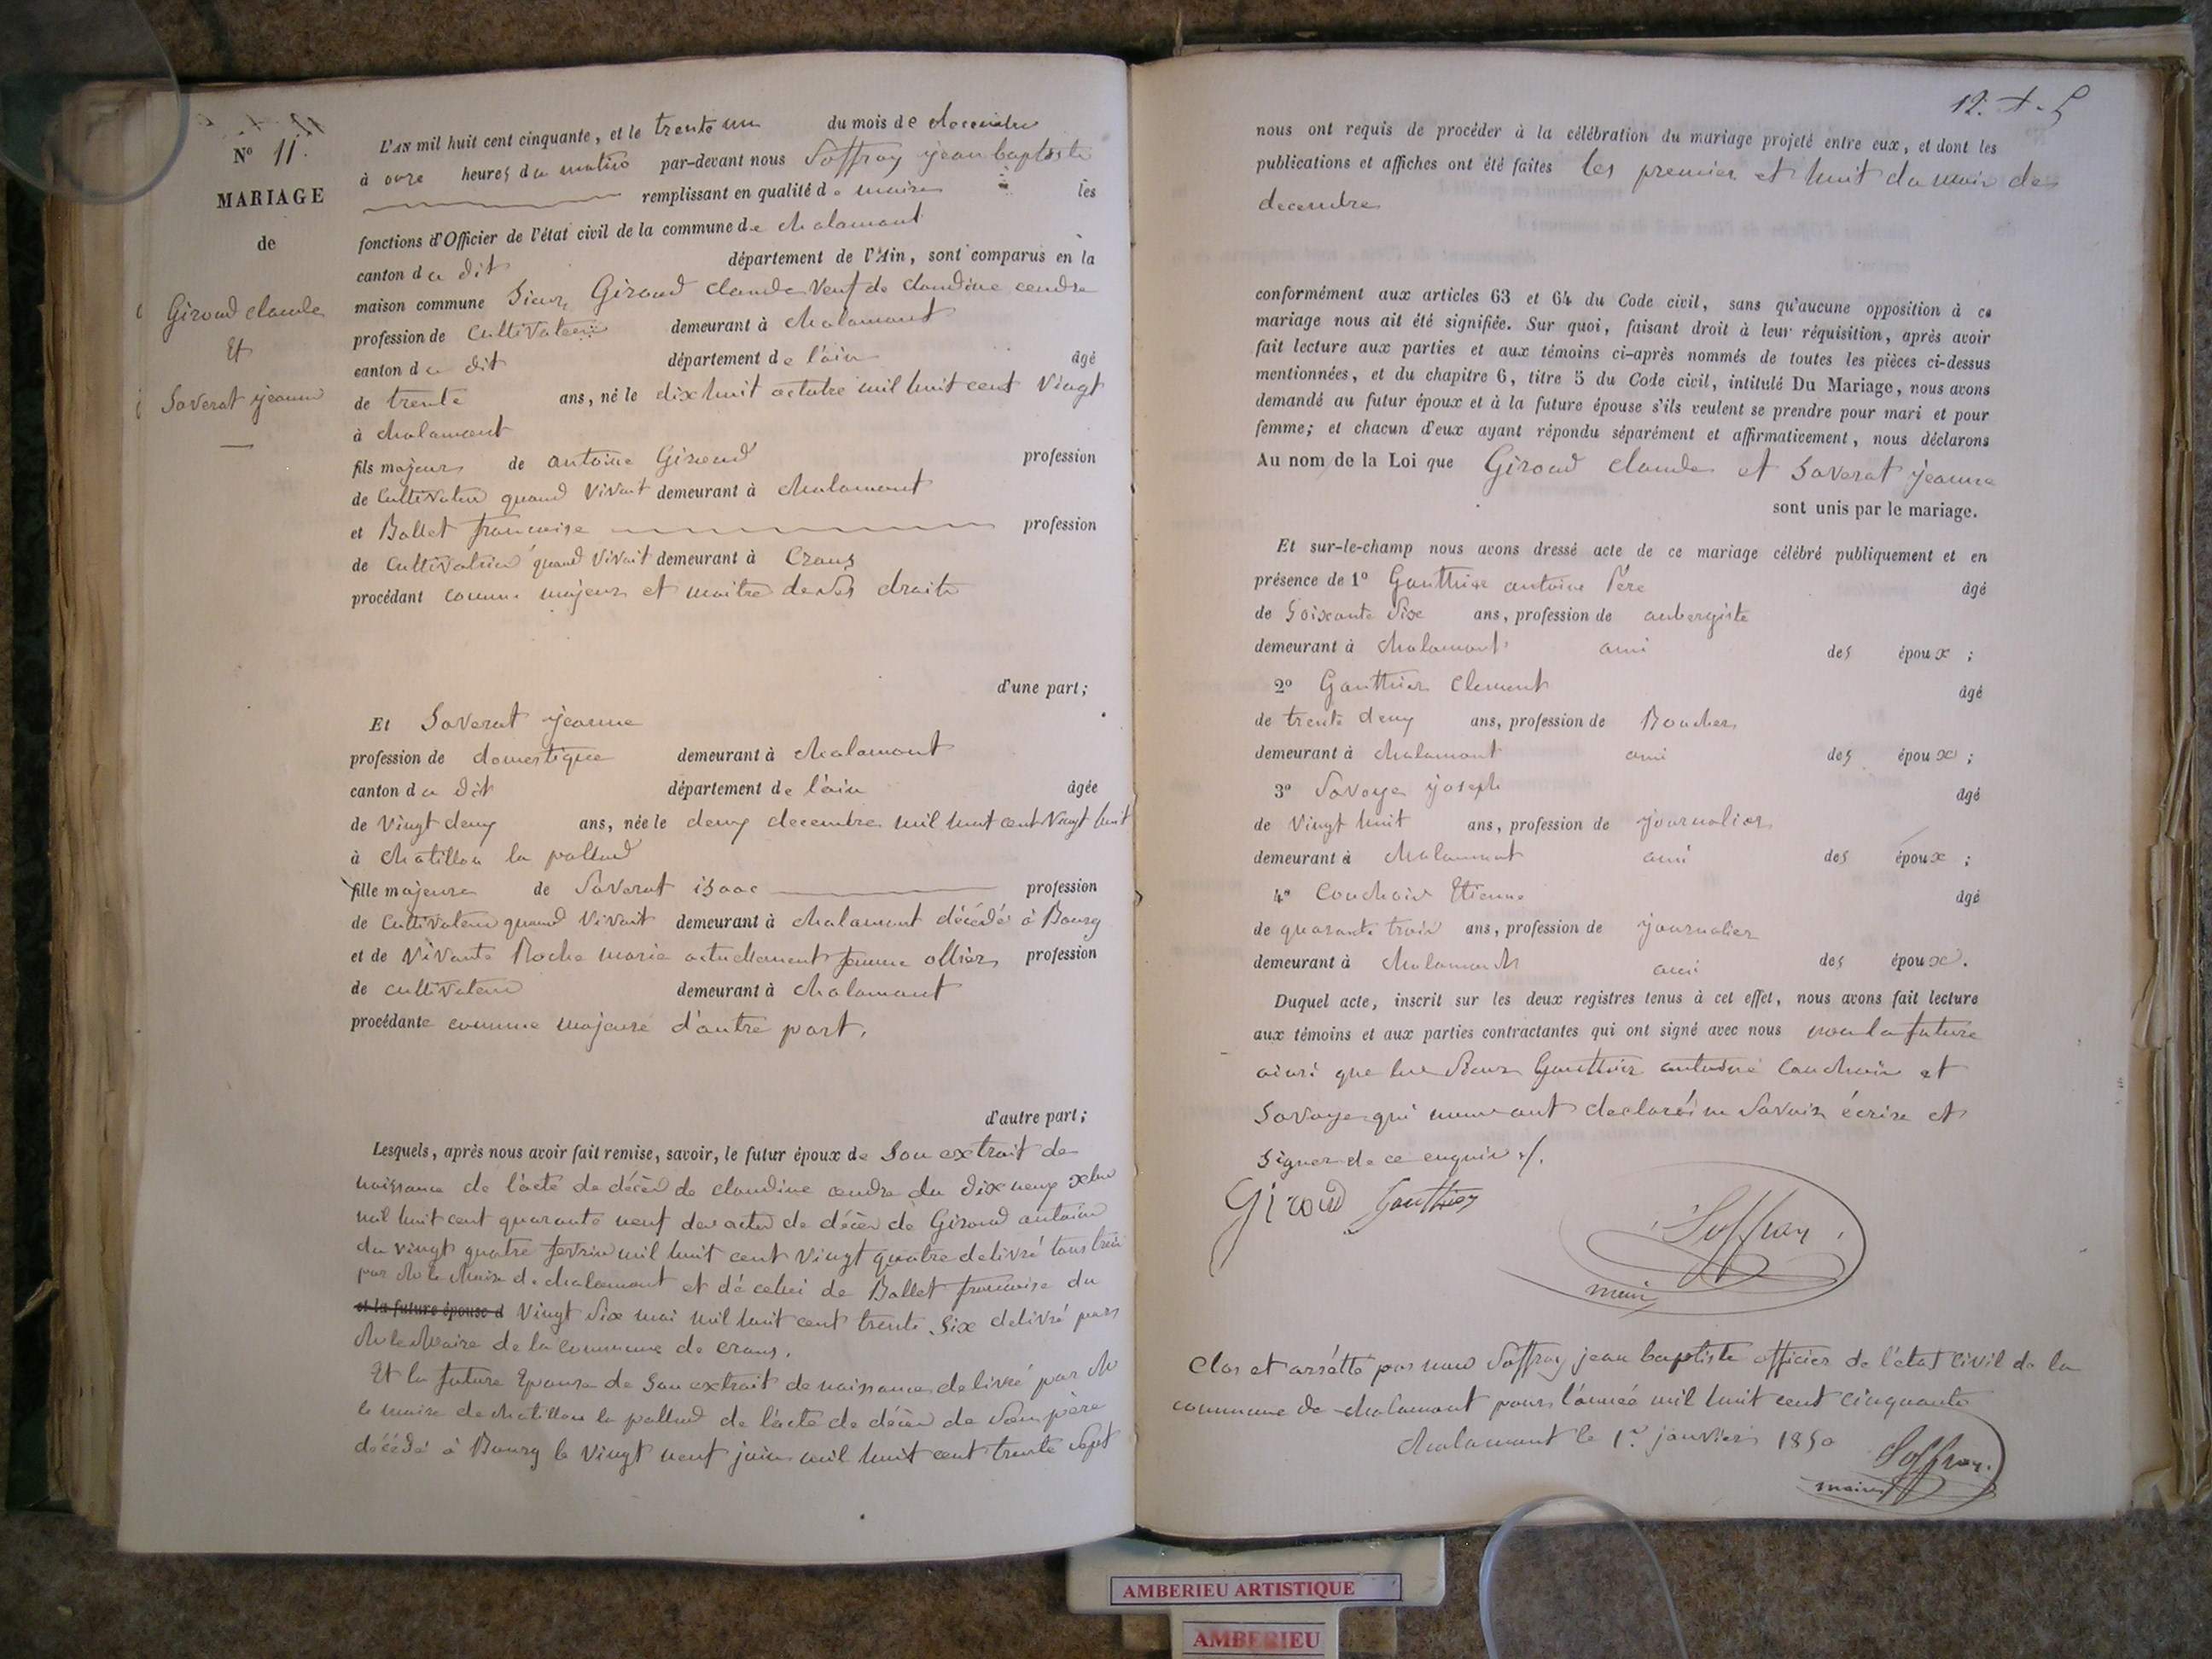 N° 11.
MARIAGE
de
Giroud claude
Et
Saverat jeanne
L'AN mil huit cent cinquante, et le trente un du mois de decembre
à onze heures du matin par-devant nous Soffray jean baptiste
remplissant en qualité de maire les
fonctions d'Officier de l'état civil de la commune de chalamont
canton du dit département de l'Ain, sont comparus en la
maison commune Sieur Giroud claude veuf de claudine cendre
profession de Cultivateur demeurant à chalamont
canton du dit département de l'ain âgé
de trente ans, né le dix huit octobre mil huit cent vingt
à chalamont
fils majeur de antoine Giroud profession
de Cultivateur quand vivait demeurant à chalamont
et Ballet francoise profession
de Cultivatrice quand vivait demeurant à Crans
procédant comme majeur et maitre de ses droits
d'une part;
Et Saverat jeanne
profession de domestique demeurant à chalamont
canton du dit département de l'ain âgée
de vingt deux ans, née le deux decembre mil huit cent vingt huit
à chatillon la pallud
fille majeure de Saverat isaac profession
de Cultivateur quand vivait demeurant à chalamont décédé à Bourg
et de vivante Roche marie actuellement femme ollier profession
de cultivateur demeurant à chalamont
procédante comme majeure d'autre part.
d'autre part;
Lesquels, après nous avoir fait remise, savoir, le futur époux de Son extrait de
naissance de l'acte de décès de claudine cendre du dix neuf xbre
mil huit cent quarante neuf des actes de décès de Giroud antoine
du vingt quatre fevrier mil huit cent vingt quatre delivré tous trois
par Mr le Maire de chalamont et de celui de Ballet francoise du
et la future épouse d vingt six mai mil huit cent trente six delivré par
Mr le Maire de la commune de crans.
Et la future Epouse de Son extrait de naissance delivré par Mr
le maire de chatillon la pallud de l'acte de décès de son père
décédé à Bourg le vingt neuf juin mil huit cent trente sept
12.
nous ont requis de procéder à la célébration du mariage projeté entre eux, et dont les
publications et affiches ont été faites les premier et huit du mois de
decembre
conformément aux articles 63 et 64 du Code civil, sans qu'aucune opposition à ce
mariage nous ait été signifiée. Sur quoi, faisant droit à leur réquisition, après avoir
fait lecture aux parties et aux témoins ci-après nommés de toutes les pièces ci-dessus
mentionnées, et du chapitre 6, titre 5 du Code civil, intitulé Du Mariage, nous avons
demandé au futur époux et à la future épouse s'ils veulent se prendre pour mari et pour
femme; et chacun d'eux ayant répondu séparément et affirmativement, nous déclarons
Au nom de la Loi que Giroud claude et Saverat jeanne
sont unis par le mariage.
Et sur-le-champ nous avons dressé acte de ce mariage célébré publiquement et en
présence de 1° Gauthier antoine Père âgé
de Soixante six ans, profession de aubergiste
demeurant à chalamont ami des époux ;
2° Gauthier Clement âgé
de trente deux ans, profession de Boucher
demeurant à chalamont ami des époux ;
3° Savoye joseph âgé
de vingt huit ans, profession de journalier
demeurant à chalamont ami des époux ;
4° Couchoin Etienne âgé
de quarante trois ans, profession de journalier
demeurant à chalamont ami des époux.
Duquel acte, inscrit sur les deux registres tenus à cet effet, nous avons fait lecture
aux témoins et aux parties contractantes qui ont signé avec nous non la future
ainsi que les sieurs Gauthier antoine Couchoin et
Savoye qui nous ont declaré ne savoir écrire et
Signer de ce enquis ./.
Giroud Gauthier Soffray
maire
Clos et arrêtté par nous Soffray jean baptiste officier de l'état civil de la
commune de chalamont pour l'année mil huit cent cinquante
chalamont le 1er janvier 1850 Soffray
maire
AMBERIEU ARTISTIQUE
AMBERIEU